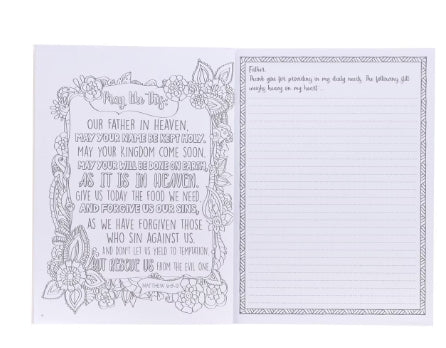 Pray like This:
OUR FATHER IN HEAVEN,
MAY YOUR NAME BE KEPT HOLY.
MAY YOUR KINGDOM COME SOON.
MAY YOUR WILL BE DONE ON EARTH,
AS IT IS IN HEAVEN.
GIVE US TODAY THE FOOD WE NEED,
AND FORGIVE US OUR SINS,
AS WE HAVE FORGIVEN THOSE
WHO SIN AGAINST US.
AND DON'T LET US YIELD TO TEMPTATION,
BUT RESCUE US FROM THE EVIL ONE.
MATTHEW
Father,
Thank you for providing in my daily needs. The following still
weighs heavy on my heart ...